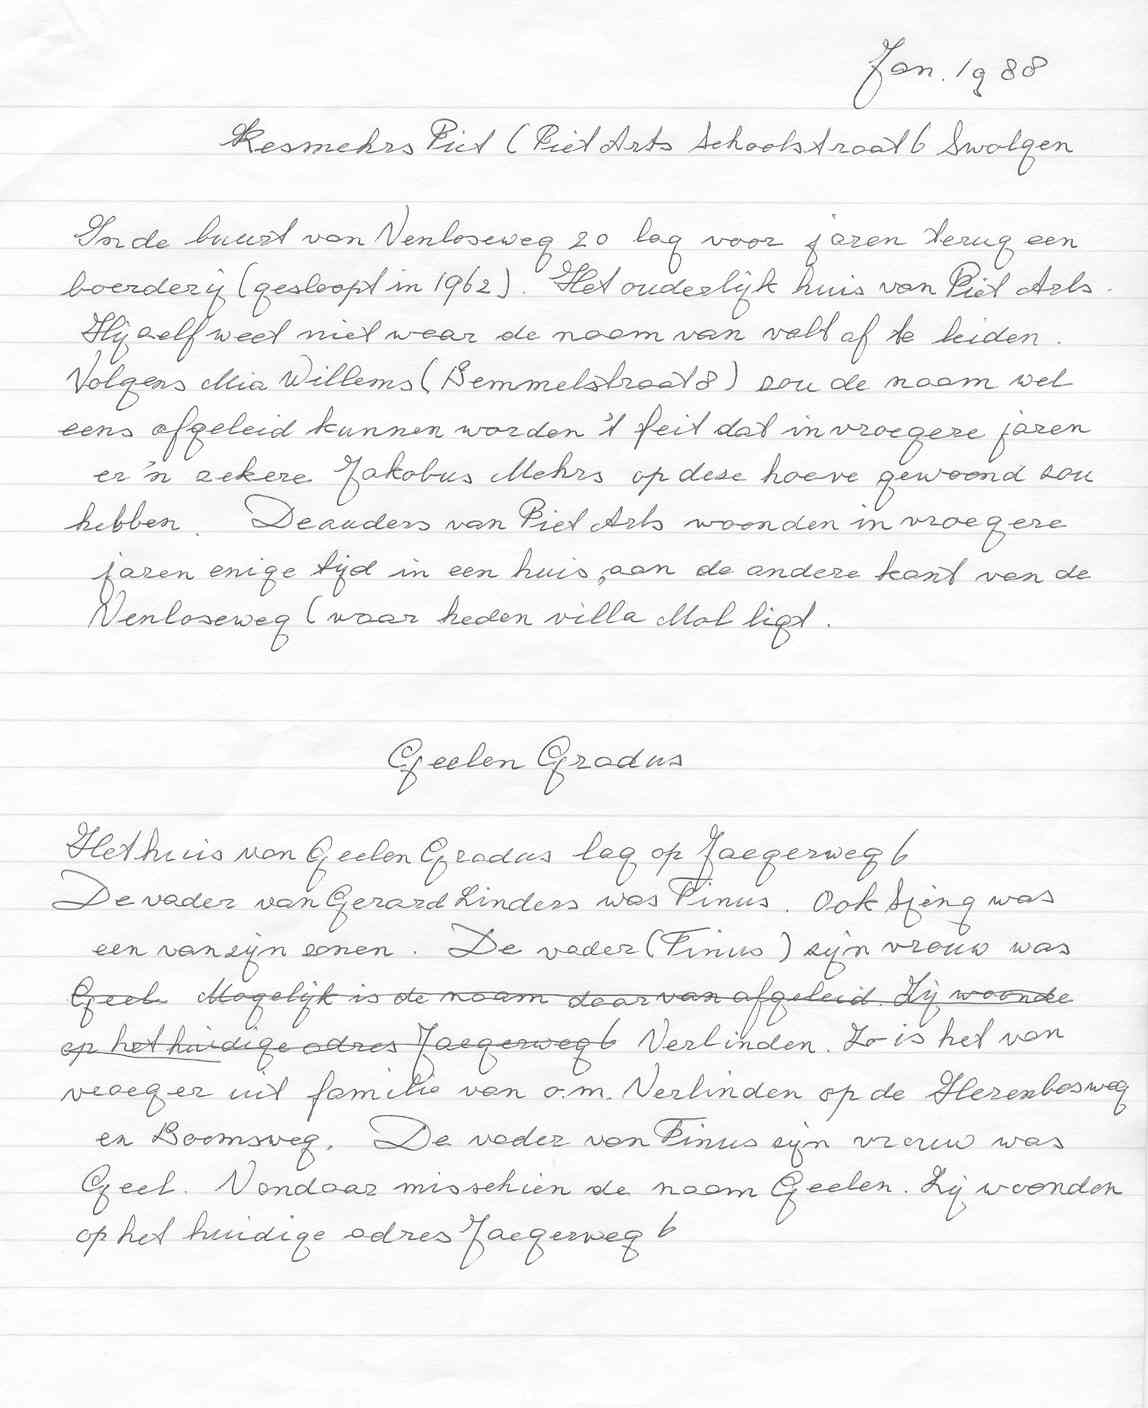 Jan. 1988
Kesmehrs Piet (Piet Arts Schoolstraat 6 Swolgen
In de buurt van Venloseweg 20 lag voor jaren terug een
boerderij (gesloopt in 1962). Het ouderlijk huis van Piet Arts.
Hij zelf weet niet waar de naam van valt af te leiden.
Volgens Mia Willems (Bemmelstraat 8) zou de naam wel
eens afgeleid kunnen worden 't feit dat in vroegere jaren
er 'n zekere Jakobus Mehrs op deze hoeve gewoond zou
hebben. De ouders van Piet Arts woonden in vroegere
jaren enige tijd in een huis, aan de andere kant van de
Venloseweg (waar heden villa Mol ligt.
Geelen Gradus
Het huis van Geelen Gradus lag op Jaegerweg 6
De vader van Gerard Linders was Pinus. Ook Sjeng was
een van zijn zonen. De vader (Tinus) zijn vrouw was
Geel. Mogelijk is de naam daar van afgeleid. Zij woonde
op het huidige adres Jaegerweg 6 Verlinden. Zo is het van
vroeger uit familie van o.m. Verlinden op de Herenbosweg
en Boomsweg. De vader van Tinus zijn vrouw was
Geel. Vandaar misschien de naam Geelen. Zij woonden
op het huidige adres Jaegerweg 6